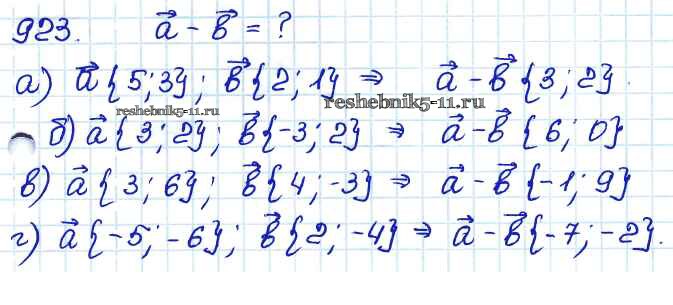 923. a⃗ - b⃗ = ?
а) a⃗ {5; 3}; b⃗ {2; 1} ⇒ a⃗ - b⃗ {3; 2}.
reshebnik5-11.ru reshebnik5-11.ru
б) a⃗ {3; 2}; b⃗ {-3; 2} ⇒ a⃗ - b⃗ {6; 0}
в) a⃗ {3; 6}; b⃗ {4; -3} ⇒ a⃗ - b⃗ {-1; 9}
г) a⃗ {-5; -6}; b⃗ {2; -4} ⇒ a⃗ - b⃗ {-7; -2}.